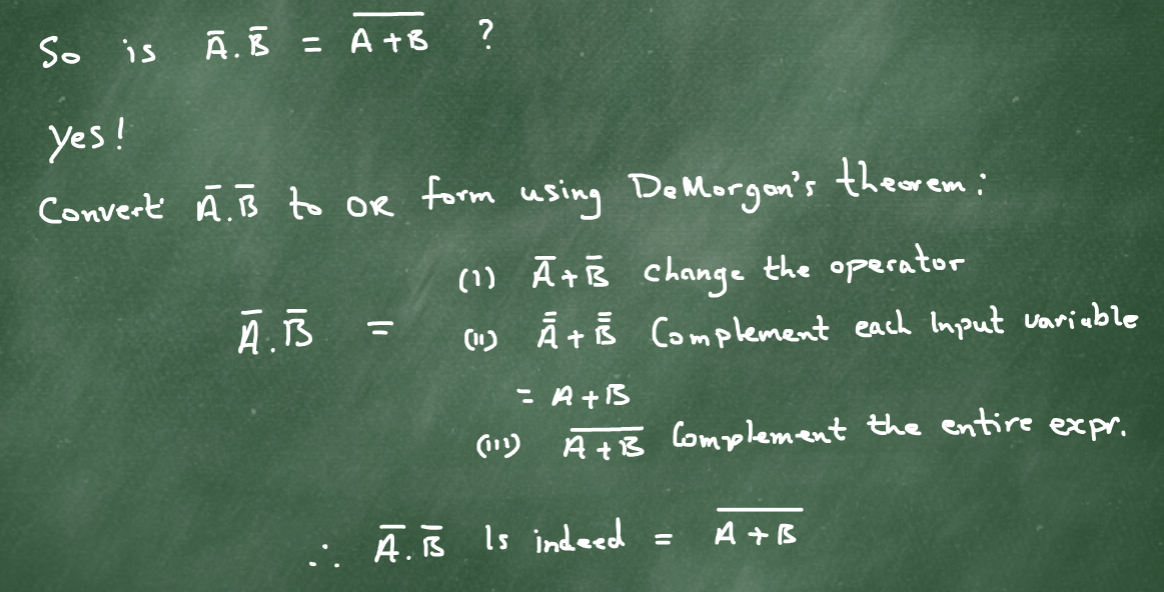 So is A̅.B̅ = A̅ ̅+̅ ̅B̅ ?
yes!
Convert A̅.B̅ to OR form using DeMorgan's theorem:
(i) A̅+B̅ change the operator
A̅.B̅ = (ii) A̿ + B̿ Complement each Input variable
= A+B
(iii) A̅ ̅+̅ ̅B̅ Complement the entire expr.
∴ A̅.B̅ Is indeed = A̅ ̅+̅ ̅B̅